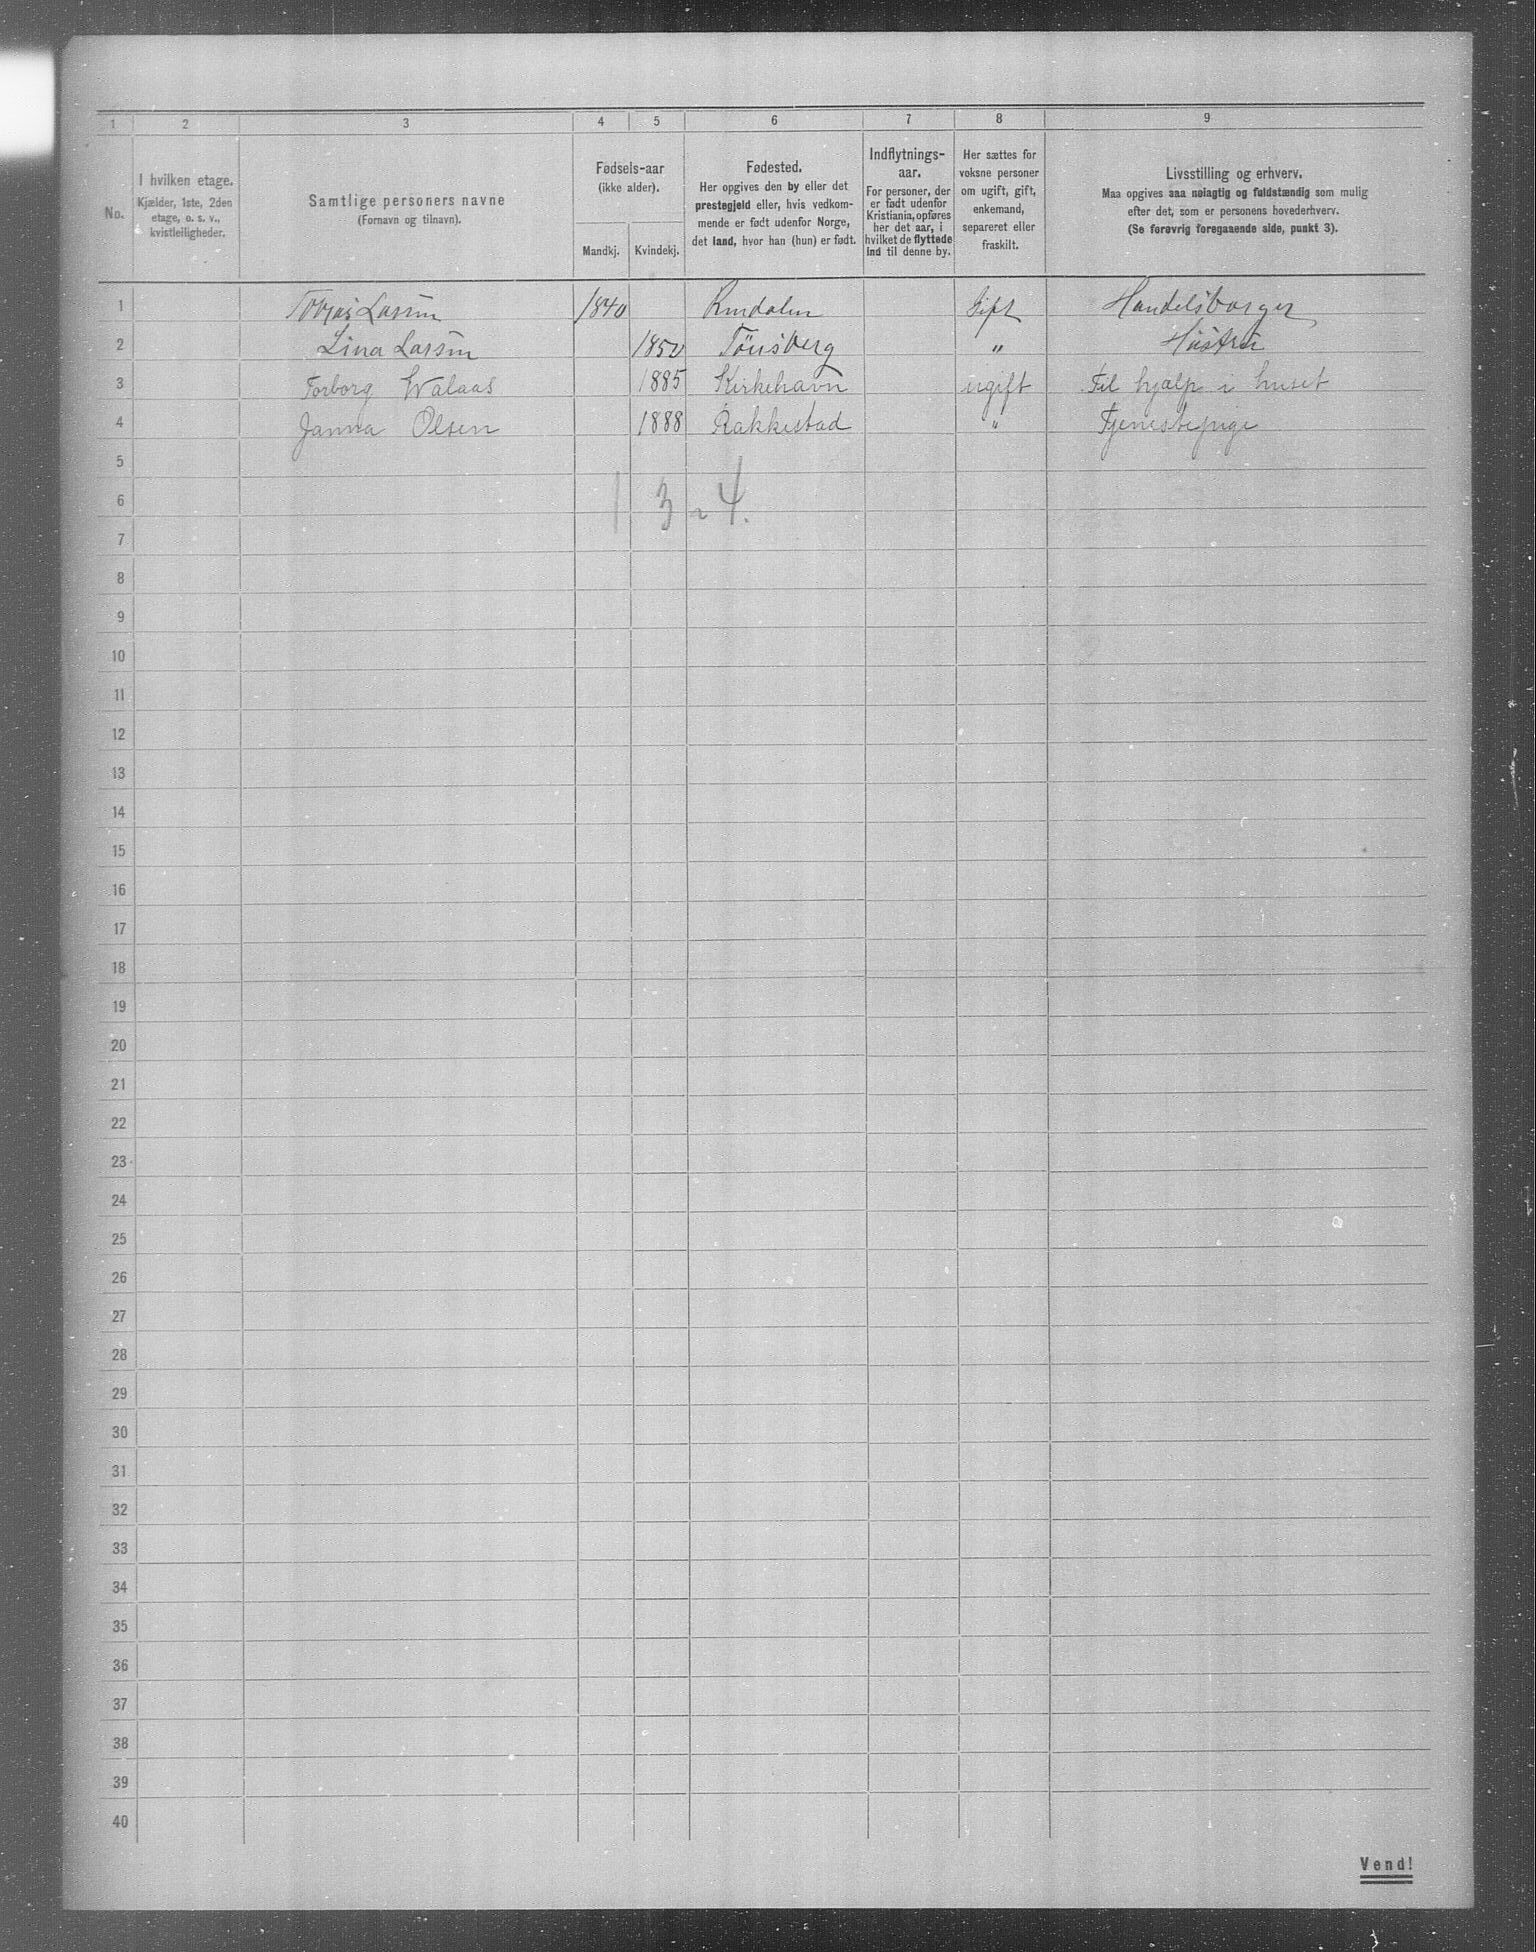 1 2 3 4 5 6 7 8 9
No.
I hvilken etage.
Kjælder, 1ste, 2den
etage, o. s. v.,
kvistleiligheder.
Samtlige personers navne
(Fornavn og tilnavn).
Fødsels-aar
(ikke alder).
Mandkj. Kvindekj.
Fødested.
Her opgives den by eller det
prestegjeld eller, hvis vedkom-
mende er født udenfor Norge,
det land, hvor han (hun) er født.
Indflytnings-
aar.
For personer, der
er født udenfor
Kristiania, opføres
her det aar, i
hvilket de flyttede
ind til denne by.
Her sættes for
voksne personer
om ugift, gift,
enkemand,
separeret eller
fraskilt.
Livsstilling og erhverv.
Maa opgives saa nøiagtig og fuldstændig som mulig
efter det, som er personens hovederhverv.
(Se forøvrig foregaaende side, punkt 3).
1 Tobias Larsen 1840 Gift Handelsborger
2 Lina Larsen 1852 Tönsberg " Hustru
3 Torborg Walaas 1885 Kirkehavn ugift Til hjælp i huset
4 Janna Olsen 1888 Rakkestad " Tjenestepige
5
6 1 3 - 4.
7
8
9
10
11
12
13
14
15
16
17
18
19
20
21
22
23
24
25
26
27
28
29
30
31
32
33
34
35
36
37
38
39
40
Vend!